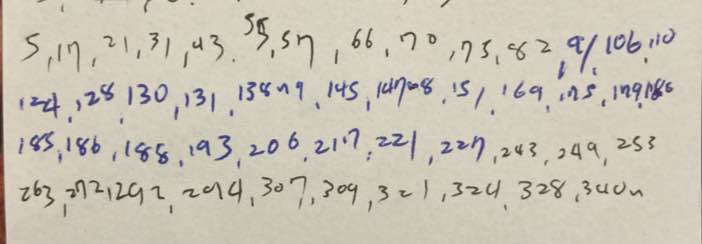 5, 17, 21, 31, 43, 55, 57, 66, 70, 75, 82, 91, 106, 110
124, 128, 130, 131, 138~9, 145, 147~8, 151, 169, 175, 179, 180
185, 186, 188, 193, 206, 217, 221, 227, 243, 249, 253
263, 272, 292, 294, 307, 309, 321, 324, 328, 340~